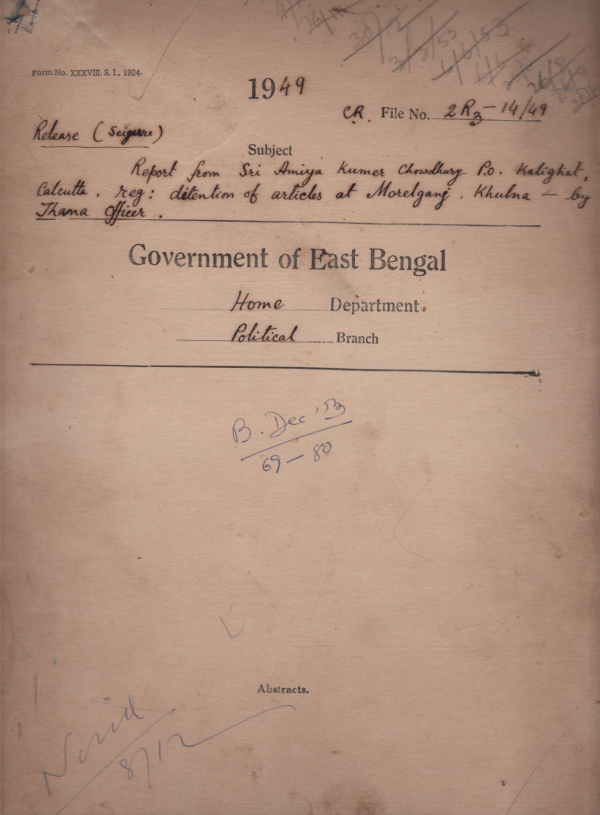 30/12
3/3/53
6/6/53
Form No. XXXVIII. S. I., 1924.
1949
C.R. File No. 2R3-14/49
Release (Seizure)
Subject
Report from Sri Amiya Kumer Chowdhury P.O. Kalighat,
Calcutta. reg: detention of articles at Morelganj. Khulna — by
Thana Officer.
Government of East Bengal
Home Department.
Political Branch
B. Dec '53
69 – 80
Abstracts.
8/12